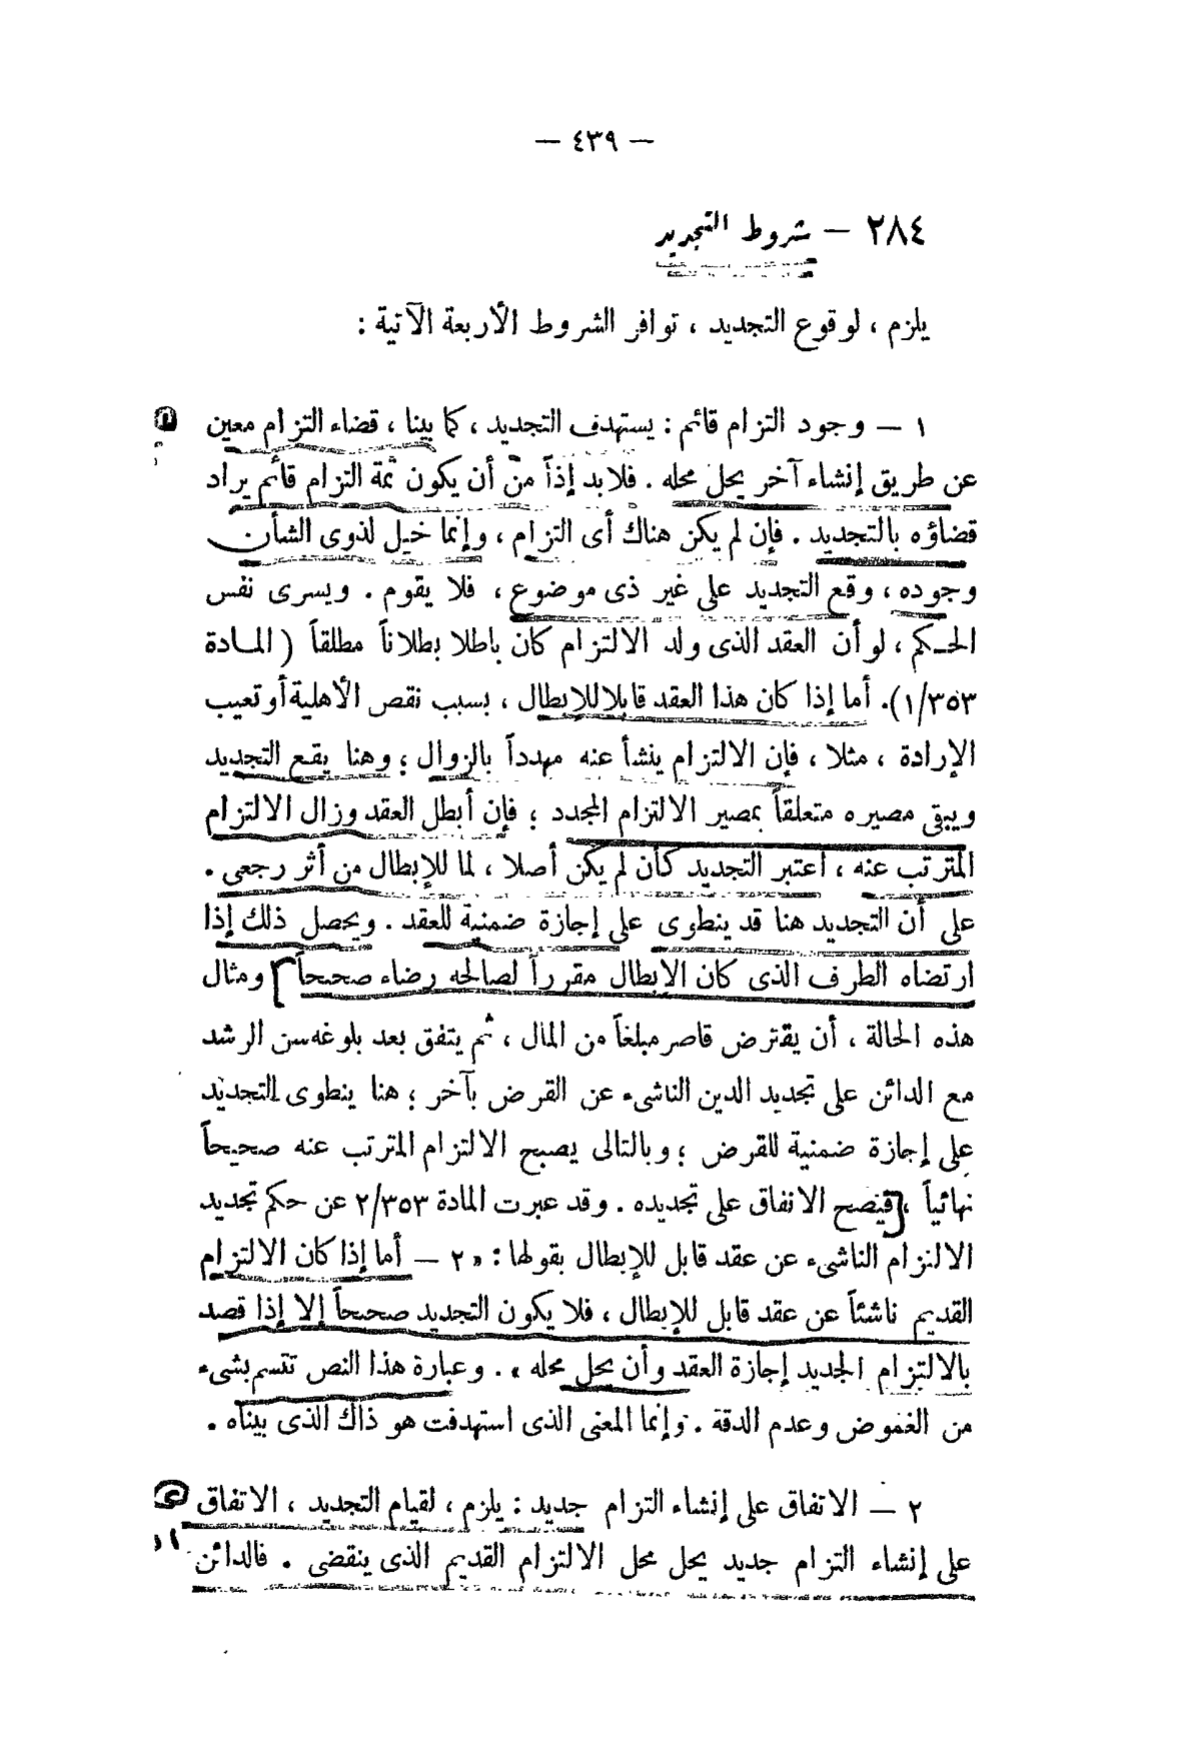 — ٤٣٩ —
٢٨٤ — شروط التجديد
يلزم ، لوقوع التجديد ، توافر الشروط الأربعة الآتية :
١ — وجود التزام قائم : يستهدف التجديد ، كما بينا ، قضاء التزام معين
عن طريق إنشاء آخر يحل محله . فلابد إذاً من أن يكون ثمة التزام قائم يراد
قضاؤه بالتجديد . فإن لم يكن هناك أى التزام ، وإنما خيل لذوى الشأن
وجوده ، وقع التجديد على غير ذى موضوع ، فلا يقوم . ويسرى نفس
الحكم ، لو أن العقد الذى ولد الالتزام كان باطلا بطلاناً مطلقاً ( المادة
١/٣٥٣). أما إذا كان هذا العقد قابلا للإبطال ، بسبب نقص الأهلية أو تعيب
الإرادة ، مثلا ، فإن الالتزام ينشأ عنه مهدداً بالزوال ؛ وهنا يقع التجديد
ويبقى مصيره متعلقاً بمصير الالتزام المجدد ؛ فإن أبطل العقد وزال الالتزام
المترتب عنه ، اعتبر التجديد كأن لم يكن أصلا ، لما للإبطال من أثر رجعى .
على أن التجديد هنا قد ينطوى على إجازة ضمنية للعقد . ويحصل ذلك إذا
ارتضاه الطرف الذى كان الإبطال مقرراً لصالحه رضاء صحيحاً ] ومثال
هذه الحالة ، أن يقترض قاصر مبلغاً من المال ، ثم يتفق بعد بلوغه سن الرشد
مع الدائن على تجديد الدين الناشىء عن القرض بآخر ؛ هنا ينطوى التجديد
على إجازة ضمنية للقرض ؛ وبالتالى يصبح الالتزام المترتب عنه صحيحاً
نهائياً ، فيصح الاتفاق على تجديده . وقد عبرت المادة ٢/٣٥٣ عن حكم تجديد
الالتزام الناشىء عن عقد قابل للإبطال بقولها : « ٢ — أما إذا كان الالتزام
القديم ناشئاً عن عقد قابل للإبطال ، فلا يكون التجديد صحيحاً إلا إذا قصد
بالالتزام الجديد إجازة العقد وأن يحل محله » . وعبارة هذا النص تتسم بشىء
من الغموض وعدم الدقة . وإنما المعنى الذى استهدفت هو ذاك الذى بيناه .
٢ — الاتفاق على إنشاء التزام جديد : يلزم ، لقيام التجديد ، الاتفاق
على إنشاء التزام جديد يحل محل الالتزام القديم الذى ينقضى . فالدائن